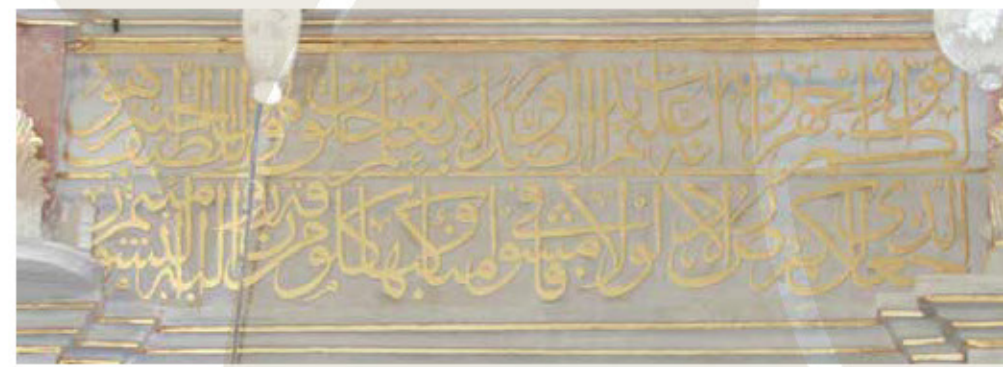 قولكم او اجهروا به انه عليم بذات الصدور الا يعلم من خلق وهو اللطيف الخبير هو
الذي جعل لكم الارض ذلولا فامشوا في مناكبها وكلوا من رزقه واليه النشور ءامنتم من